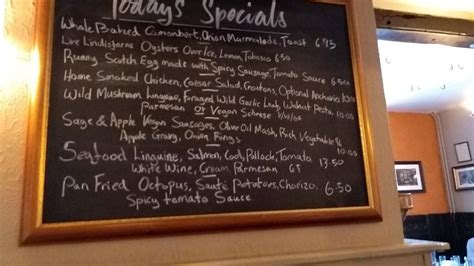 Todays Specials
Whole Baked Camembert, Onion Marmalade, Toast
Live Lindisfarne Oysters Over Ice, Lemon, Tobasco 6.50
Runny Scotch Egg made with Spicy Sausage, Tomato Sauce 6.50
Home Smoked Chicken, Caesar Salad, Croutons, Optional Anchovies
Wild Mushroom Linguine, Foraged Wild Garlic, Walnut Pesto,
Parmesan or Vegan
Sage & Apple Vegan Sausages, Olive Oil Mash, Rich Vegetable
Apple Gravy, Onion Rings 10.00
Seafood Linguine, Salmon, Cod, Pollock, Tomato 13.50
White Wine, Cream Parmesan GF
Pan Fried Octopus, Sauté Potatoes, Chorizo, 6.50
Spicy tomato Sauce